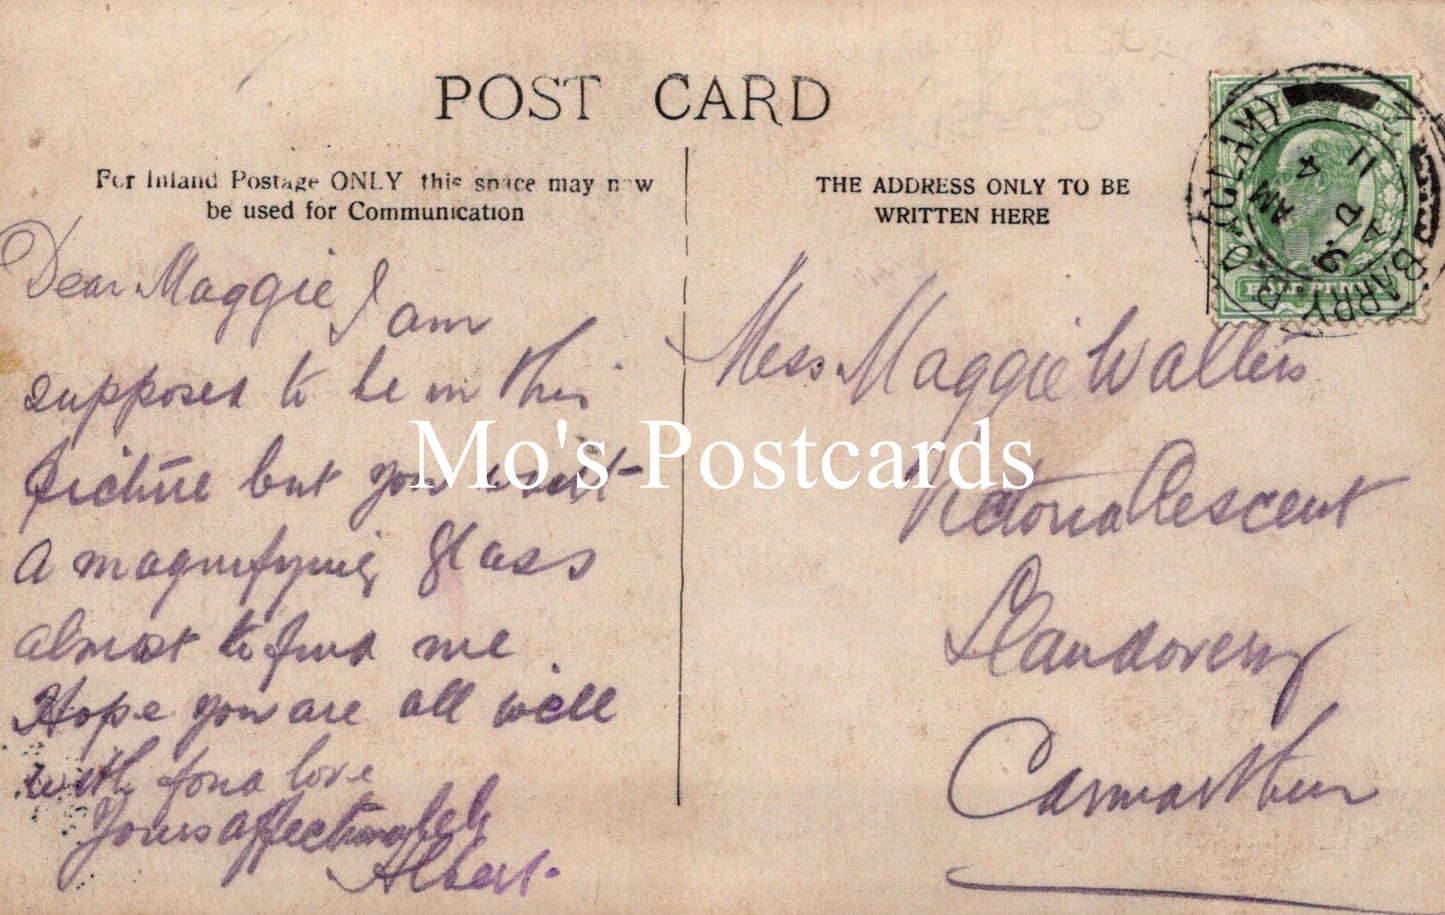 POST CARD
For Inland Postage ONLY this space may now
be used for Communication
THE ADDRESS ONLY TO BE
WRITTEN HERE
Dear Maggie I am
supposed to be in this
picture but you want
a magnifying glass
almost to find me.
Hope you are all well
with fond love
Yours affectionately
Albert.
Miss Maggie Walters
Victoria Crescent
Llandovery
Carmarthen
BARRY DOCK (GLAM)
AM
4
11
HALF PENNY
Mo's Postcards